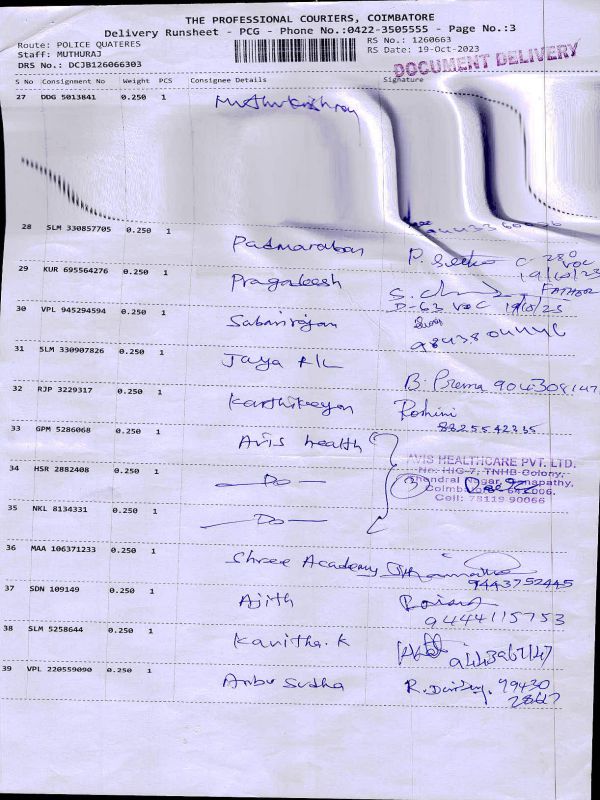 THE PROFESSIONAL COURIERS, COIMBATORE
Delivery Runsheet - PCG - Phone No.:0422-3505555 - Page No.:3
Route: POLICE QUATERES RS No.: 1260663
Staff: MUTHURAJ RS Date: 19-Oct-2023
DRS No.: DCJB126066303
DOCUMENT DELIVERY
S No Consignment No Weight PCS Consignee Details Signature
27 DDG 5013841 0.250 1 Muthukrishnan
28 SLM 330857705 0.250 1
Padmaraban P.
19/10/23
29 KUR 695564276 0.250 1 Pragadeesh FATHER
D-63 VOC 19/10/23
30 VPL 945294594 0.250 1 Sabarirajan
31 SLM 330907826 0.250 1 Jaya
B. Prema
32 RJP 3229317 0.250 1 Karthikeyan Rohini
8825542335
33 GPM 5286068 0.250 1 Avis health
AVIS HEALTHCARE PVT. LTD.
No: HIG-7, TNHB Colony,
34 HSR 2882408 0.250 1 Do 3 Nagar, Ganapathy,
Coimbatore - 641006.
Cell: 78119 90066
35 NKL 8134331 0.250 1 Do
36 MAA 106371233 0.250 1 Shree Academy
9443752445
37 SDN 109149 0.250 1 Ajith
9444115753
38 SLM 5258644 0.250 1 Kavitha. K
39 VPL 220559090 0.250 1 Anbu Sudha R. 99430
28617